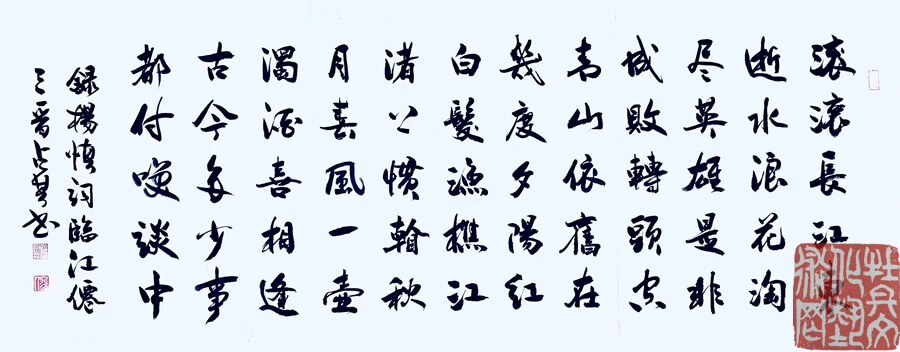 滚滚長江東
逝水浪花淘
尽英雄是非
成敗轉頭空
青山依舊在
幾度夕陽紅
白髮漁樵江
渚上慣看秋
月春風一壺
濁酒喜相逢
古今多少事
都付笑談中
録楊慎詞臨江僊
三晋占书